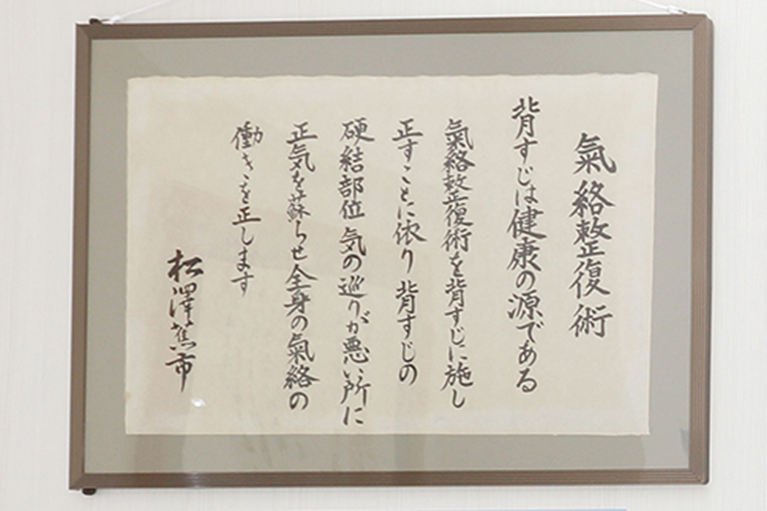 氣絡整復術
背すじは健康の源である
氣絡整復術を背すじに施し
正すことに依り 背すじの
硬結部位 気の巡りが悪い所に
正気を蘇らせ全身の氣絡の
働きを正します
松澤蕉市